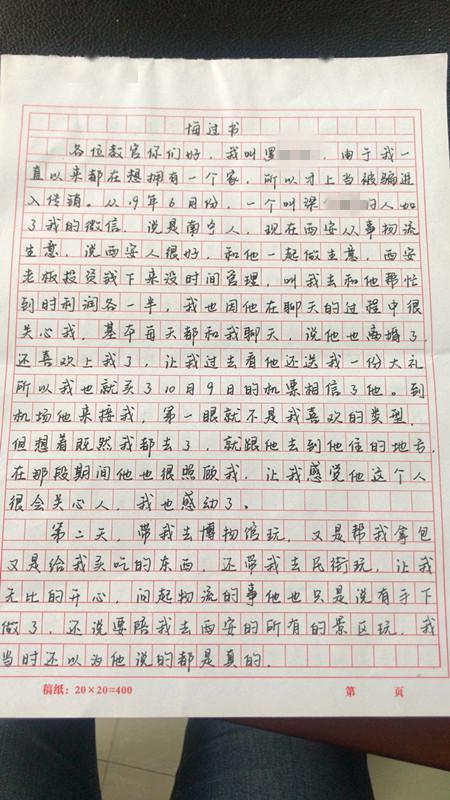 悔过书
各位教官你们好，我叫罗 ，由于我一
直以来都在想拥有一个家，所以才上当被骗进
入传销。从19年6月份，一个叫梁 的人加
了我的微信，说是南宁人，现在西安从事物流
生意，说西安人很好，和他一起做生意，西安
老板投资钱下来没时间管理，叫我去和他帮忙
到时利润各一半，我也因他在聊天的过程中很
关心我，基本每天都和我聊天，说他也离婚了，
还喜欢上我了，让我过去看他还送我一份大礼
所以我也就买了10月9日的机票相信了他。到
机场他来接我，第一眼就不是我喜欢的类型，
但想着既然我都去了，就跟他去到他住的地方，
在那段期间他也很照顾我，让我感觉他这个人
很会关心人，我也感动了。
第二天，带我去博物馆玩，又是帮我拿包
又是给我买吃的东西，还带我去民街玩，让我
无比的开心，问起物流的事他也只是说有手下
做了，还说要陪我去西安的所有的景区玩，我
当时还以为他说的都是真的.
稿纸：20×20=400 第 页